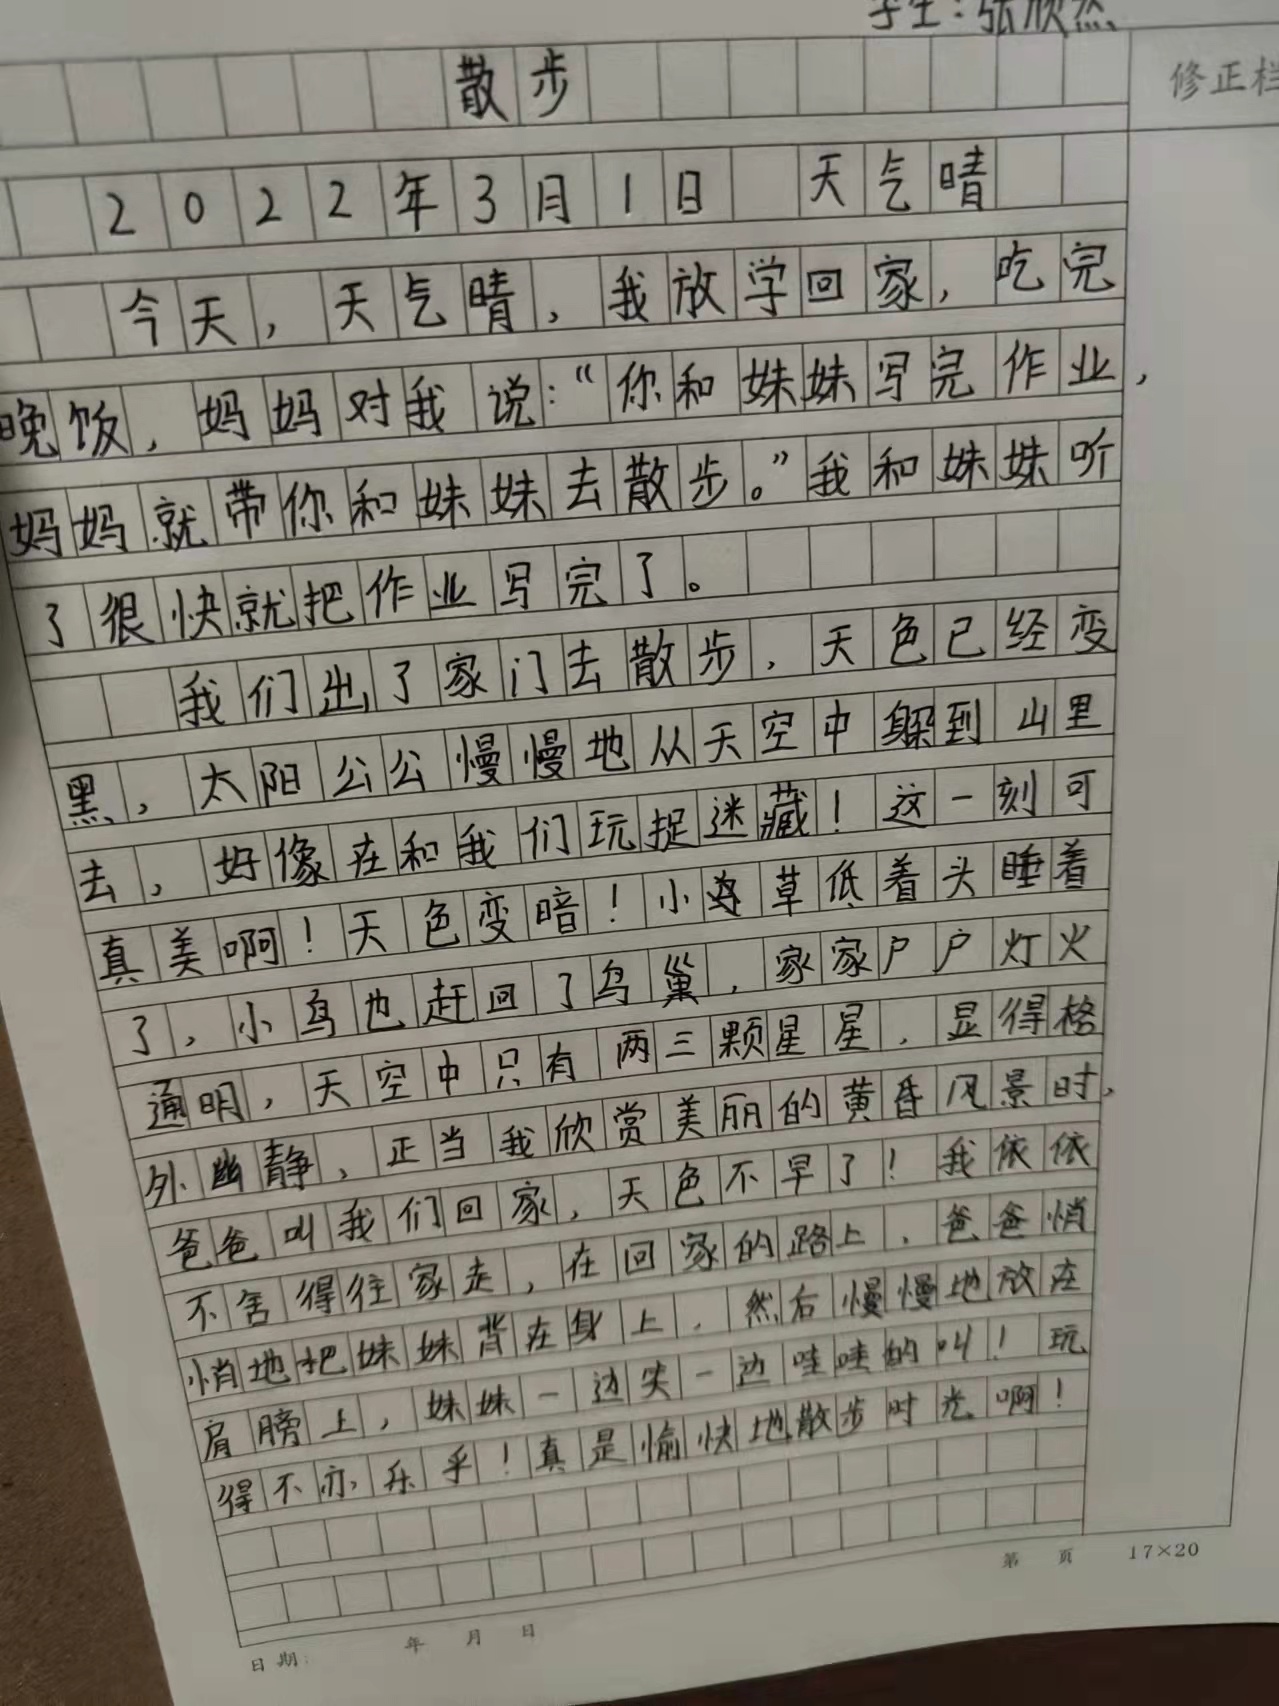 学生：张欣然
散步
修正栏
2022年3月1日 天气晴
今天，天气晴，我放学回家，吃完
晚饭，妈妈对我说：“你和妹妹写完作业，
妈妈就带你和妹妹去散步。”我和妹妹听
了很快就把作业写完了。
我们出了家门去散步，天色已经变
黑，太阳公公慢慢地从天空中躲到山里
去，好像在和我们玩捉迷藏！这一刻可
真美啊！天色变暗！小草低着头睡着
了，小鸟也赶回了鸟巢，家家户户灯火
通明，天空中只有两三颗星星，显得格
外幽静，正当我欣赏美丽的黄昏风景时，
爸爸叫我们回家，天色不早了！我依依
不舍得往家走，在回家的路上，爸爸悄
悄地把妹妹背在身上，然后慢慢地放在
肩膀上，妹妹一边笑一边哇哇的叫！玩
得不亦乐乎！真是愉快地散步时光啊！
第 页 17×20
日期： 年 月 日